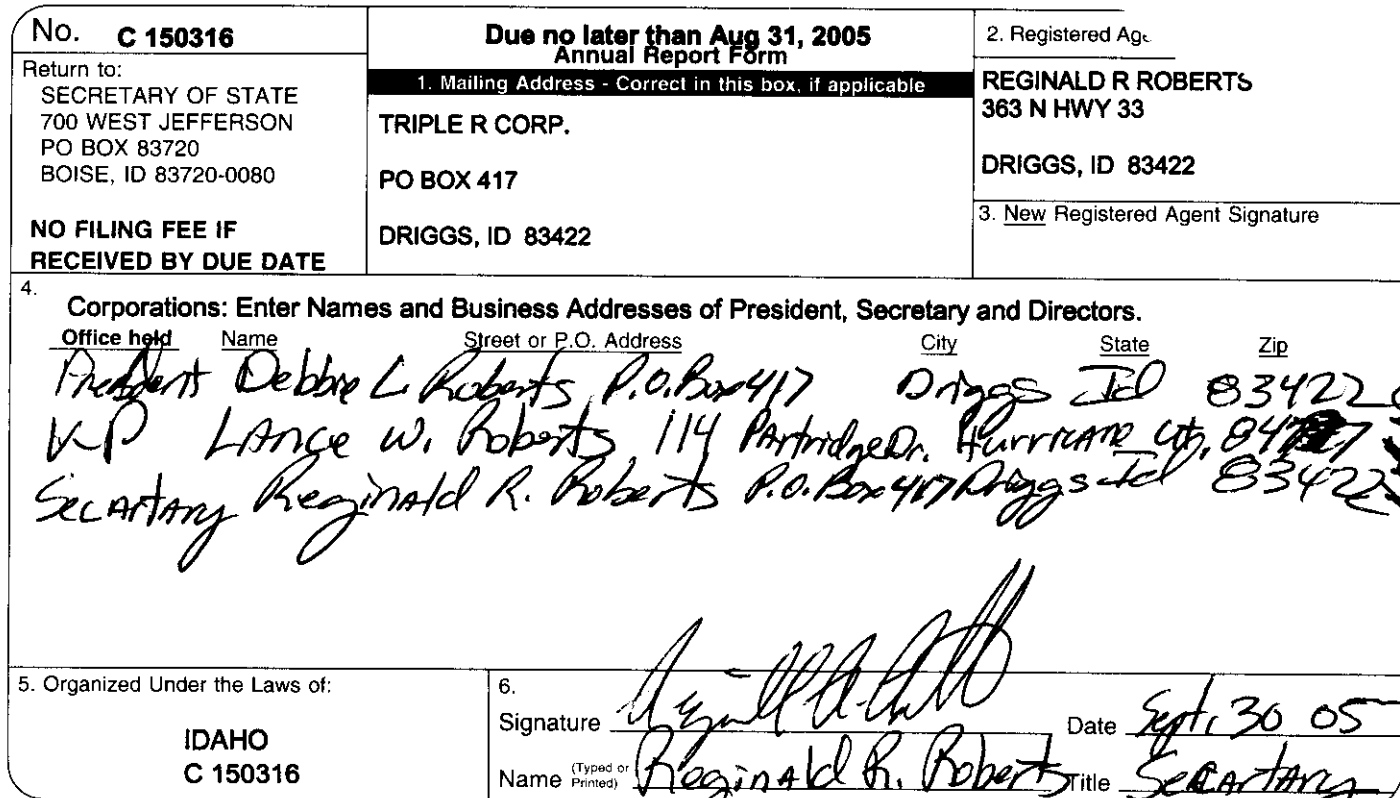 No. C 150316
Return to:
SECRETARY OF STATE
700 WEST JEFFERSON
PO BOX 83720
BOISE, ID 83720-0080
NO FILING FEE IF
RECEIVED BY DUE DATE
Due no later than Aug 31, 2005
Annual Report Form
1. Mailing Address - Correct in this box, if applicable
TRIPLE R CORP.
PO BOX 417
DRIGGS, ID 83422
2. Registered Age
REGINALD R ROBERTS
363 N HWY 33
DRIGGS, ID 83422
3. New Registered Agent Signature
4.
Corporations: Enter Names and Business Addresses of President, Secretary and Directors.
Office held Name Street or P.O. Address City State Zip
President Debbie L. Roberts P.O. Box 417 Driggs Id 83422
V-P Lance W. Roberts 114 Partridge Dr. Hurricane
Secartary Reginald R. Roberts P.O. Box 417 Driggs Id 83422
5. Organized Under the Laws of:
IDAHO
C 150316
6.
Signature Date Sept. 30 05
Name (Typed or Printed) Reginald R. Roberts Title Secartary